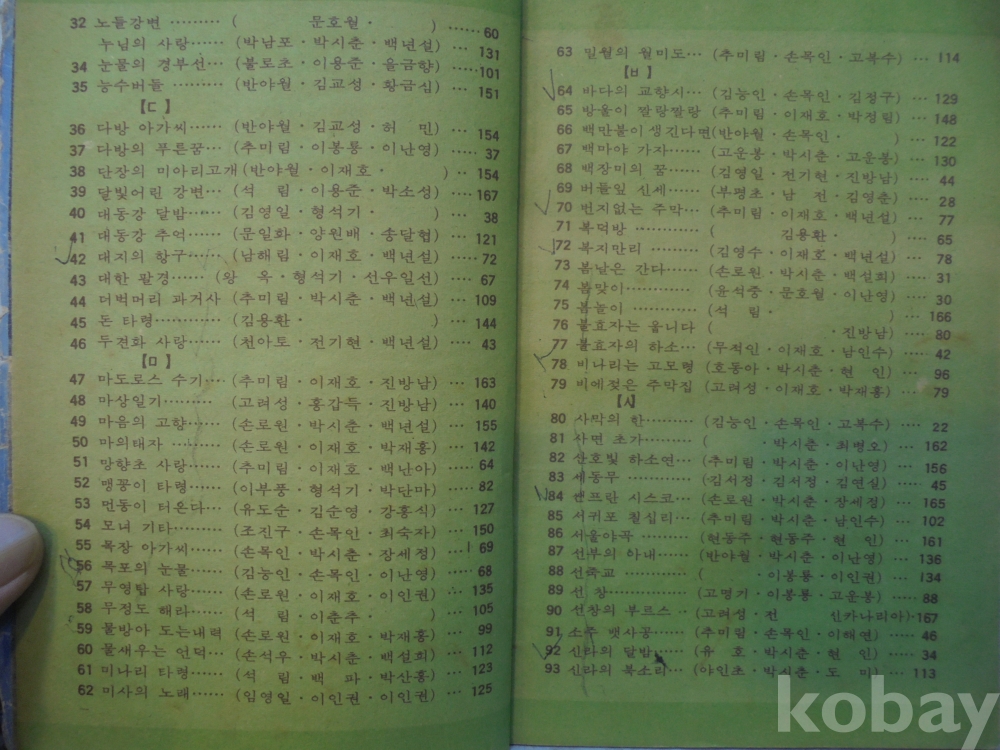 32 노들강변 ……… ( 문호월・ ) ……60
누님의 사랑… (박남포・박시춘・백년설) … 131
34 눈물의 경부선… (불로초・이용준・울금향) …101
35 능수버들 …… (반야월・김교성・황금심) … 151
【ㄷ】
36 다방 아가씨…… (반야월・김교성・허 민) … 154
37 다방의 푸른꿈… (추미림・이봉룡・이난영) … 37
38 단장의 미아리고개 (반야월・이재호・ ) … 154
39 달빛어린 강변… (석 림・이용준・박소성) … 167
40 대동강 달밤… (김영일・형석기・ ) … 38
41 대동강 추억… (문일화・양원배・송달협) … 121
42 대지의 항구… (남해림・이재호・백년설) … 72
43 대한 팔경 …… (왕 옥・형석기・선우일선) … 67
44 더벅머리 과거사 (추미림・박시춘・백년설) … 109
45 돈 타령 ……… (김용환・ ) … 144
46 두견화 사랑… (천아토・전기현・백년설) … 43
【ㅁ】
47 마도로스 수기… (추미림・이재호・진방남) … 163
48 마상일기…… (고려성・홍갑득・진방남) … 140
49 마음의 고향… (손로원・박시춘・백년설) … 155
50 마의태자 …… (손로원・이재호・박재홍) … 142
51 망향초 사랑… (추미림・이재호・백난아) … 64
52 맹꽁이 타령… (이부풍・형석기・박단마) … 82
53 먼동이 터온다… (유도순・김순영・강홍식) … 127
54 모녀 기타 …… (조진구・손목인・최숙자) … 150
55 목장 아가씨…… (손목인・박시춘・장세정) … 69
56 목포의 눈물… (김능인・손목인・이난영) … 68
57 무영탑 사랑… (손로원・이재호・이인권) … 135
58 무정도 해라… (석 림・이춘추・ ) … 105
59 물방아 도는내력 (손로원・이재호・박재홍) … 99
60 물새우는 언덕… (손석우・박시춘・백설희) … 112
61 미나리 타령… (석 림・백 파・박산홍) … 123
62 미사의 노래… (임영일・이인권・이인권) … 125
63 밀월의 월미도… (추미림・손목인・고복수) … 114
【ㅂ】
64 바다의 교향시… (김능인・손목인・김정구) … 129
65 방울이 짤랑짤랑 (추미림・이재호・박정림) … 148
66 백만불이 생긴다면 (반야월・손목인・ ) … 122
67 백마야 가자… (고운봉・박시춘・고운봉) … 130
68 백장미의 꿈… (김영일・전기현・진방남) … 44
69 버들잎 신세… (부평초・남 전・김영춘) … 28
70 번지없는 주막… (추미림・이재호・백년설) … 77
71 복덕방 ……… ( 김용환・ ) … 65
72 복지만리 …… (김영수・이재호・백년설) … 78
73 봄날은 간다… (손로원・박시춘・백설희) … 31
74 봄맞이 ……… (윤석중・문호월・이난영) … 30
75 봄놀이 ……… (석 림・ ) … 166
76 불효자는 웁니다 ( ・진방남) … 80
77 불효자의 하소… (무적인・이재호・남인수) … 42
78 비나리는 고모령 (호동아・박시춘・현 인) … 96
79 비에젖은 주막집 (고려성・이재호・박재홍) … 79
【ㅅ】
80 사막의 한…… (김능인・손목인・고복수) … 22
81 사면 초가…… ( ・박시춘・최병호) … 162
82 산호빛 하소연… (추미림・박시춘・이난영) … 156
83 세동무 ……… (김서정・김서정・김연실) … 45
84 쌘프란 시스코… (손로원・박시춘・장세정) … 165
85 서귀포 칠십리… (추미림・박시춘・남인수) … 102
86 서울야곡 …… (현동주・현동주・현 인) … 161
87 선부의 아내… (반야월・박시춘・이난영) … 136
88 선죽교 ……… ( ・이봉룡・이인권) … 134
89 선 창 ……… (고명기・이봉룡・고운봉) … 88
90 선창의 부르스… (고려성・전 신카나리아)・167
91 소주 뱃사공… (추미림・손목인・이해연) … 46
92 신라의 달밤… (유 호・박시춘・현 인) … 34
93 신라의 북소리… (야인초・박시춘・도 미) … 113
kobay